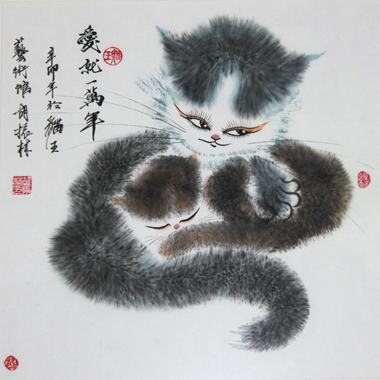 愛就一萬年
辛卯年於貓王
藝術館胡振林